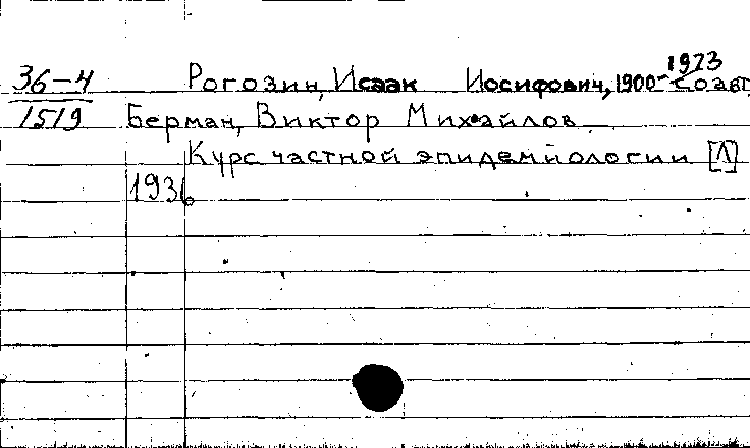 1973
36-4 Рогозин, Исаак Иосифович, 1900- соавт.
1519 Берман, Виктор Михайлов.
Курс частной эпидемиологии [Л]
1936